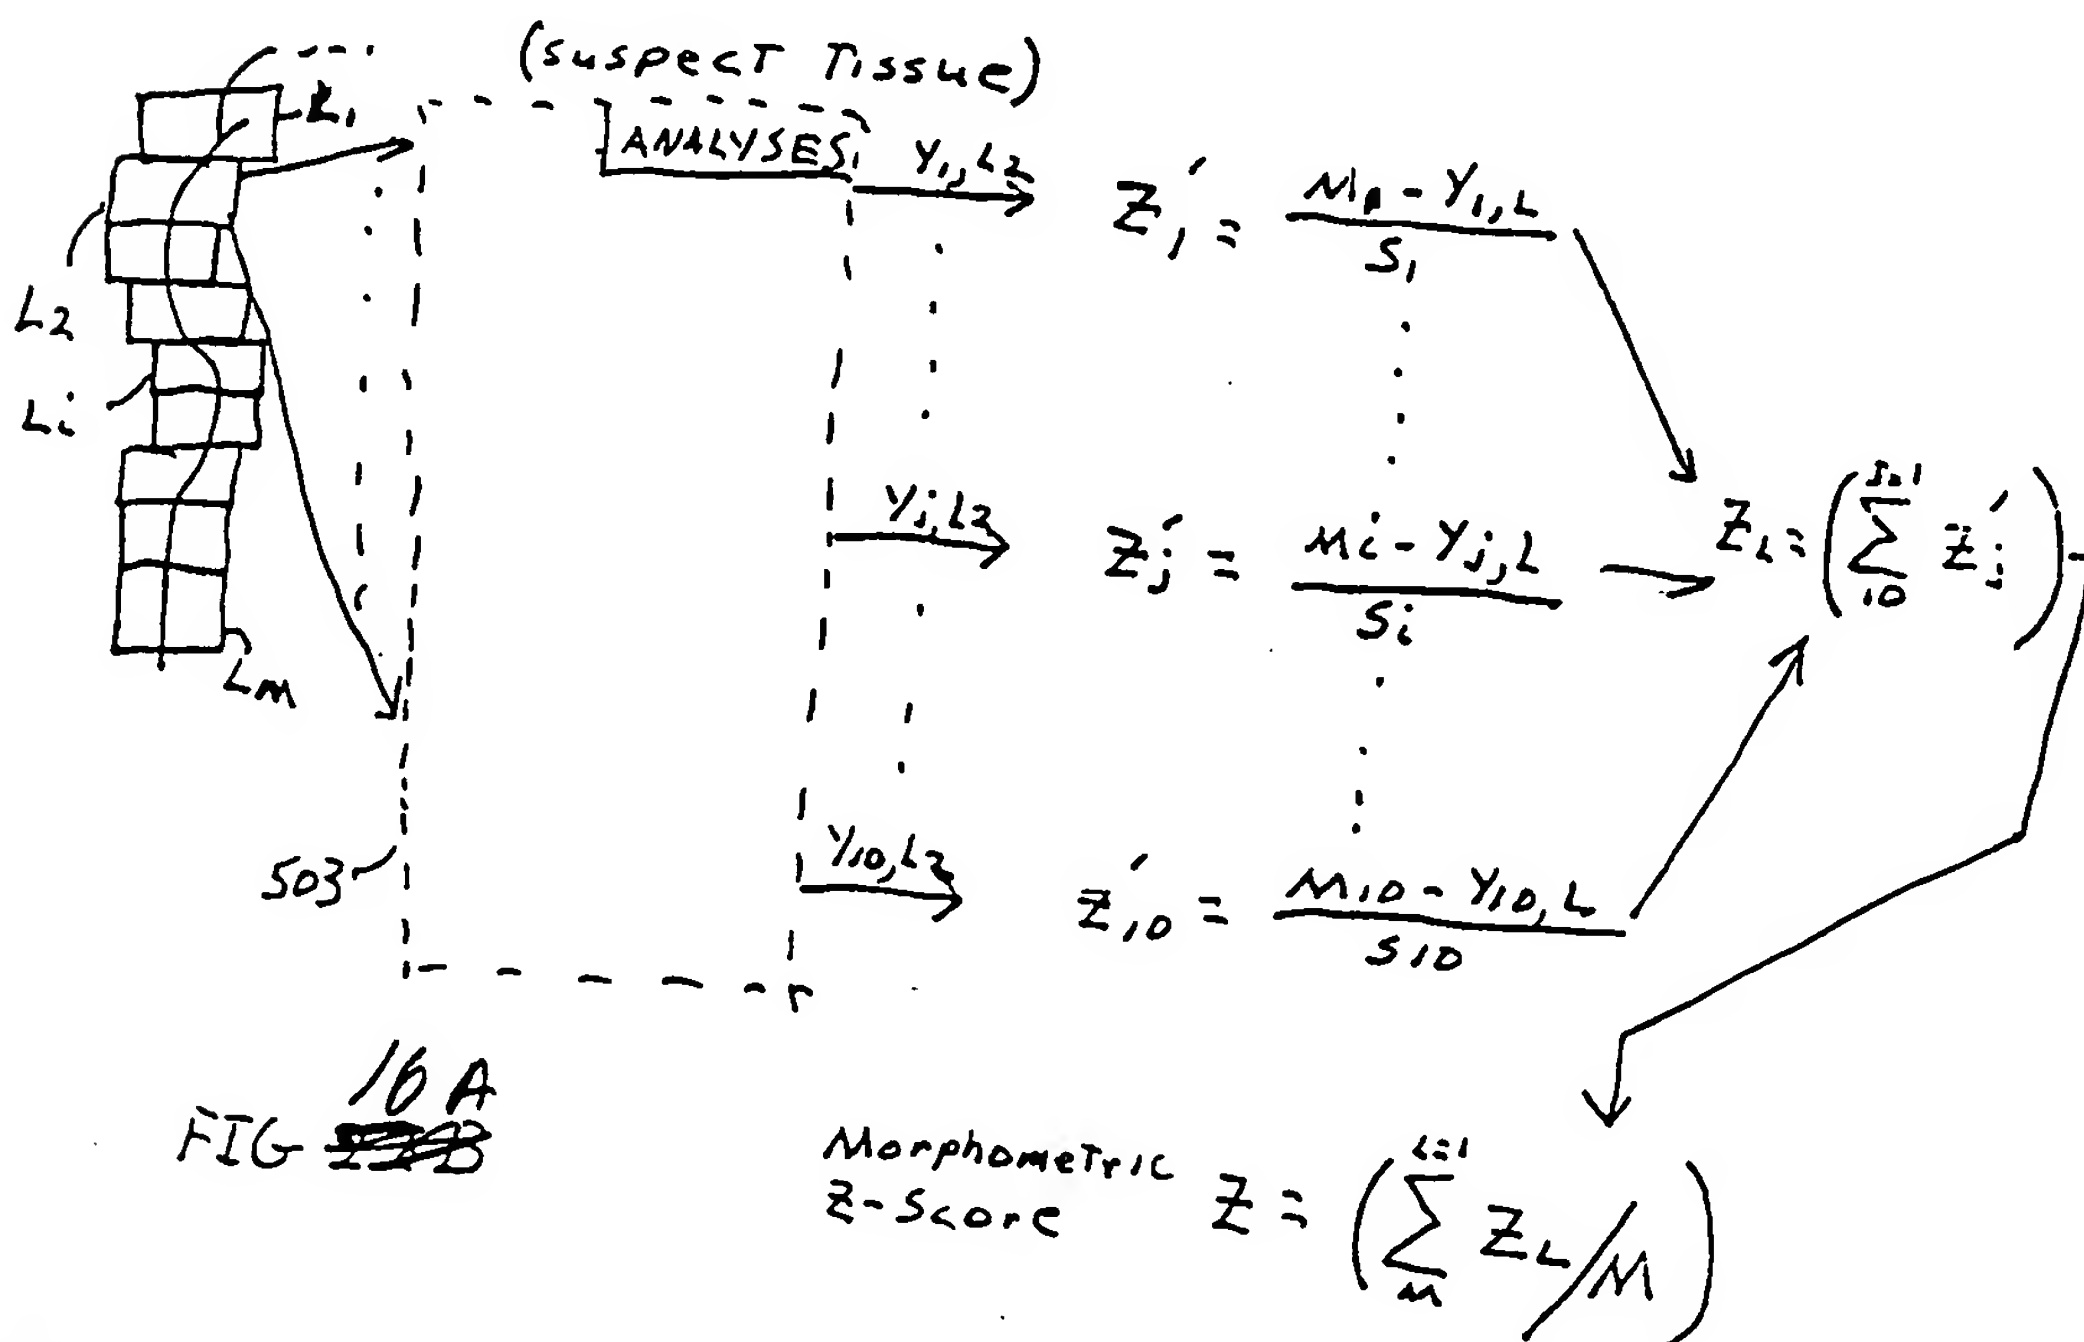 (suspect Tissue)
L1
ANALYSES
Y1,L2
Z1' = M1 - Y1,L / S1
L2
Li
Yj,L2
Zj' = Mi - Yj,L / Si
ZL = (∑ Zj')
10
Lm
503
Y10,L2
Z10' = M10 - Y10,L / S10
16 A
FIG
Morphometric
Z-Score
Z = (∑ ZL/M)
L=1
M